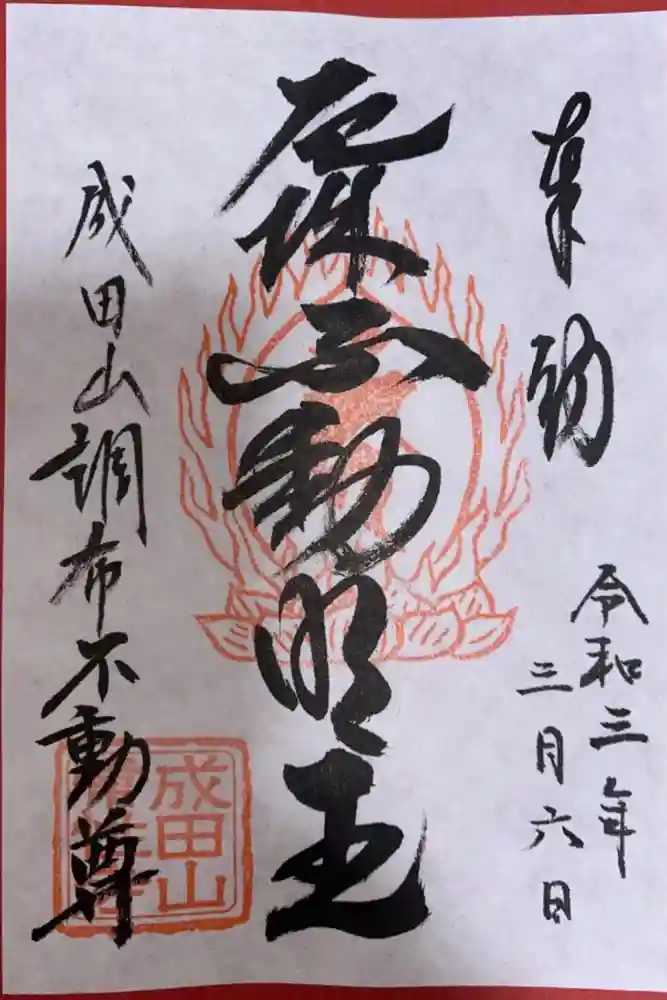 奉
令和三年
三月六日
厄除不動明王
成田山調布不動尊
成田山